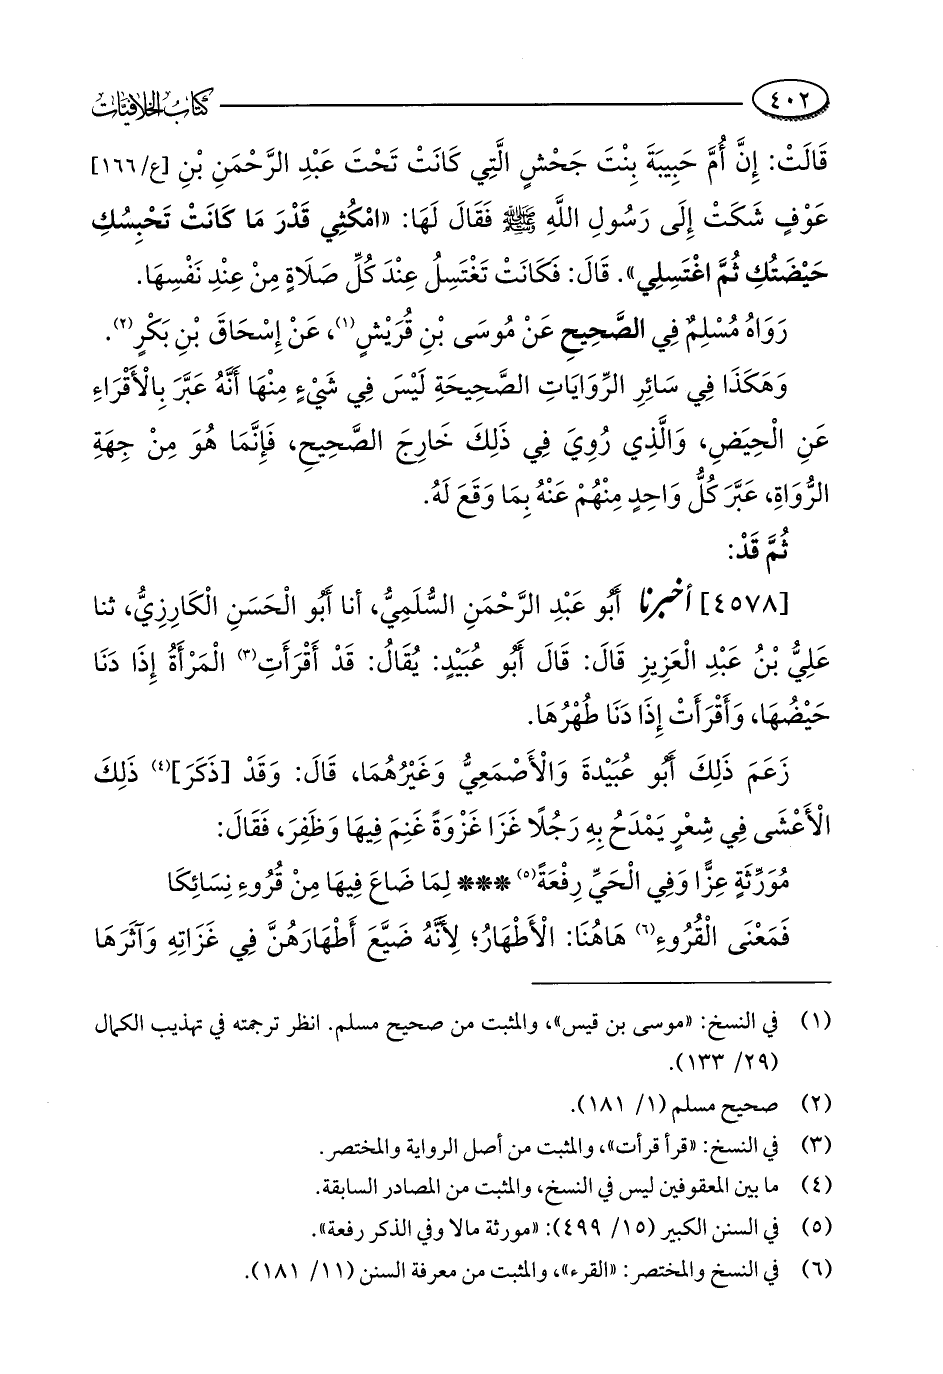 ٤٠٢ كتاب الخلافيات
قَالَتْ: إِنَّ أُمَّ حَبِيبَةَ بِنْتَ جَحْشٍ الَّتِي كَانَتْ تَحْتَ عَبْدِ الرَّحْمَنِ بْنِ [ع/١٦٦]
عَوْفٍ شَكَتْ إِلَى رَسُولِ اللَّهِ ﷺ فَقَالَ لَهَا: «امْكُثِي قَدْرَ مَا كَانَتْ تَحْبِسُكِ
حَيْضَتُكِ ثُمَّ اغْتَسِلِي». قَالَ: فَكَانَتْ تَغْتَسِلُ عِنْدَ كُلِّ صَلَاةٍ مِنْ عِنْدِ نَفْسِهَا.
رَوَاهُ مُسْلِمٌ فِي الصَّحِيحِ عَنْ مُوسَى بْنِ قُرَيْشٍ(١)، عَنْ إِسْحَاقَ بْنِ بَكْرٍ(٢).
وَهَكَذَا فِي سَائِرِ الرِّوَايَاتِ الصَّحِيحَةِ لَيْسَ فِي شَيْءٍ مِنْهَا أَنَّهُ عَبَّرَ بِالْأَقْرَاءِ
عَنِ الْحِيَضِ، وَالَّذِي رُوِيَ فِي ذَلِكَ خَارِجَ الصَّحِيحِ، فَإِنَّمَا هُوَ مِنْ جِهَةِ
الرُّوَاةِ، عَبَّرَ كُلُّ وَاحِدٍ مِنْهُمْ عَنْهُ بِمَا وَقَعَ لَهُ.
ثُمَّ قَدْ:
[٤٥٧٨] أخبرنا أَبُو عَبْدِ الرَّحْمَنِ السُّلَمِيُّ، أنا أَبُو الْحَسَنِ الْكَارِزِيُّ، ثنا
عَلِيُّ بْنُ عَبْدِ الْعَزِيزِ قَالَ: قَالَ أَبُو عُبَيْدٍ: يُقَالُ: قَدْ أَقْرَأَتِ(٣) الْمَرْأَةُ إِذَا دَنَا
حَيْضُهَا، وَأَقْرَأَتْ إِذَا دَنَا طُهْرُهَا.
زَعَمَ ذَلِكَ أَبُو عُبَيْدةَ وَالْأَصْمَعِيُّ وَغَيْرُهُمَا، قَالَ: وَقَدْ [ذَكَرَ](٤) ذَلِكَ
الْأَعْشَى فِي شِعْرٍ يَمْدَحُ بِهِ رَجُلًا غَزَا غَزْوَةً غَنِمَ فِيهَا وَظَفِرَ، فَقَالَ:
مُوَرِّثَةٍ عِزًّا وَفِي الْحَيِّ رِفْعَةً(٥) *** لِمَا ضَاعَ فِيهَا مِنْ قُرُوءِ نِسَائِكَا
فَمَعْنَى الْقُرُوءِ(٦) هَاهُنَا: الْأَطْهَارُ؛ لِأَنَّهُ ضَيَّعَ أَطْهَارَهُنَّ فِي غَزَاتِهِ وَآثَرَهَا
(١) في النسخ: «موسى بن قيس»، والمثبت من صحيح مسلم. انظر ترجمته في تهذيب الكمال
(٢٩/ ١٣٣).
(٢) صحيح مسلم (١/ ١٨١).
(٣) في النسخ: «قرأ قرأت»، والمثبت من أصل الرواية والمختصر.
(٤) ما بين المعقوفين ليس في النسخ، والمثبت من المصادر السابقة.
(٥) في السنن الكبير (١٥/ ٤٩٩): «مورثة مالا وفي الذكر رفعة».
(٦) في النسخ والمختصر: «القرء»، والمثبت من معرفة السنن (١١/ ١٨١).